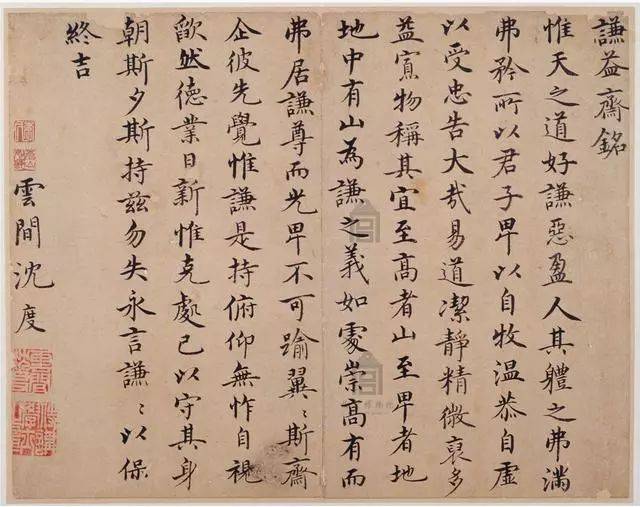 謙益齋銘
惟天之道好謙惡盈人其軆之弗滿
弗矜所以君子卑以自牧溫恭自虛
以受忠告大哉易道潔靜精微裒多
益寡物稱其宜至高者山至卑者地
地中有山為謙之義如處崇高有而
弗居謙尊而光卑不可踰翼〻斯齋
企彼先覺惟謙是持俯仰無怍自視
歉然德業日新惟克處己以守其身
朝斯夕斯持茲勿失永言謙〻以保
終吉
雲間沈度